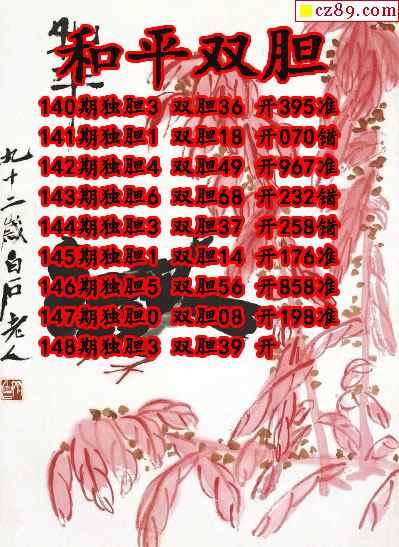 cz89.com
和平双胆
140期独胆3 双胆36 开395准
141期独胆1 双胆18 开070错
142期独胆4 双胆49 开967准
143期独胆6 双胆68 开232错
144期独胆3 双胆37 开258错
145期独胆1 双胆14 开176准
146期独胆5 双胆56 开858准
147期独胆0 双胆08 开198准
148期独胆3 双胆39 开
九十二岁白石老人